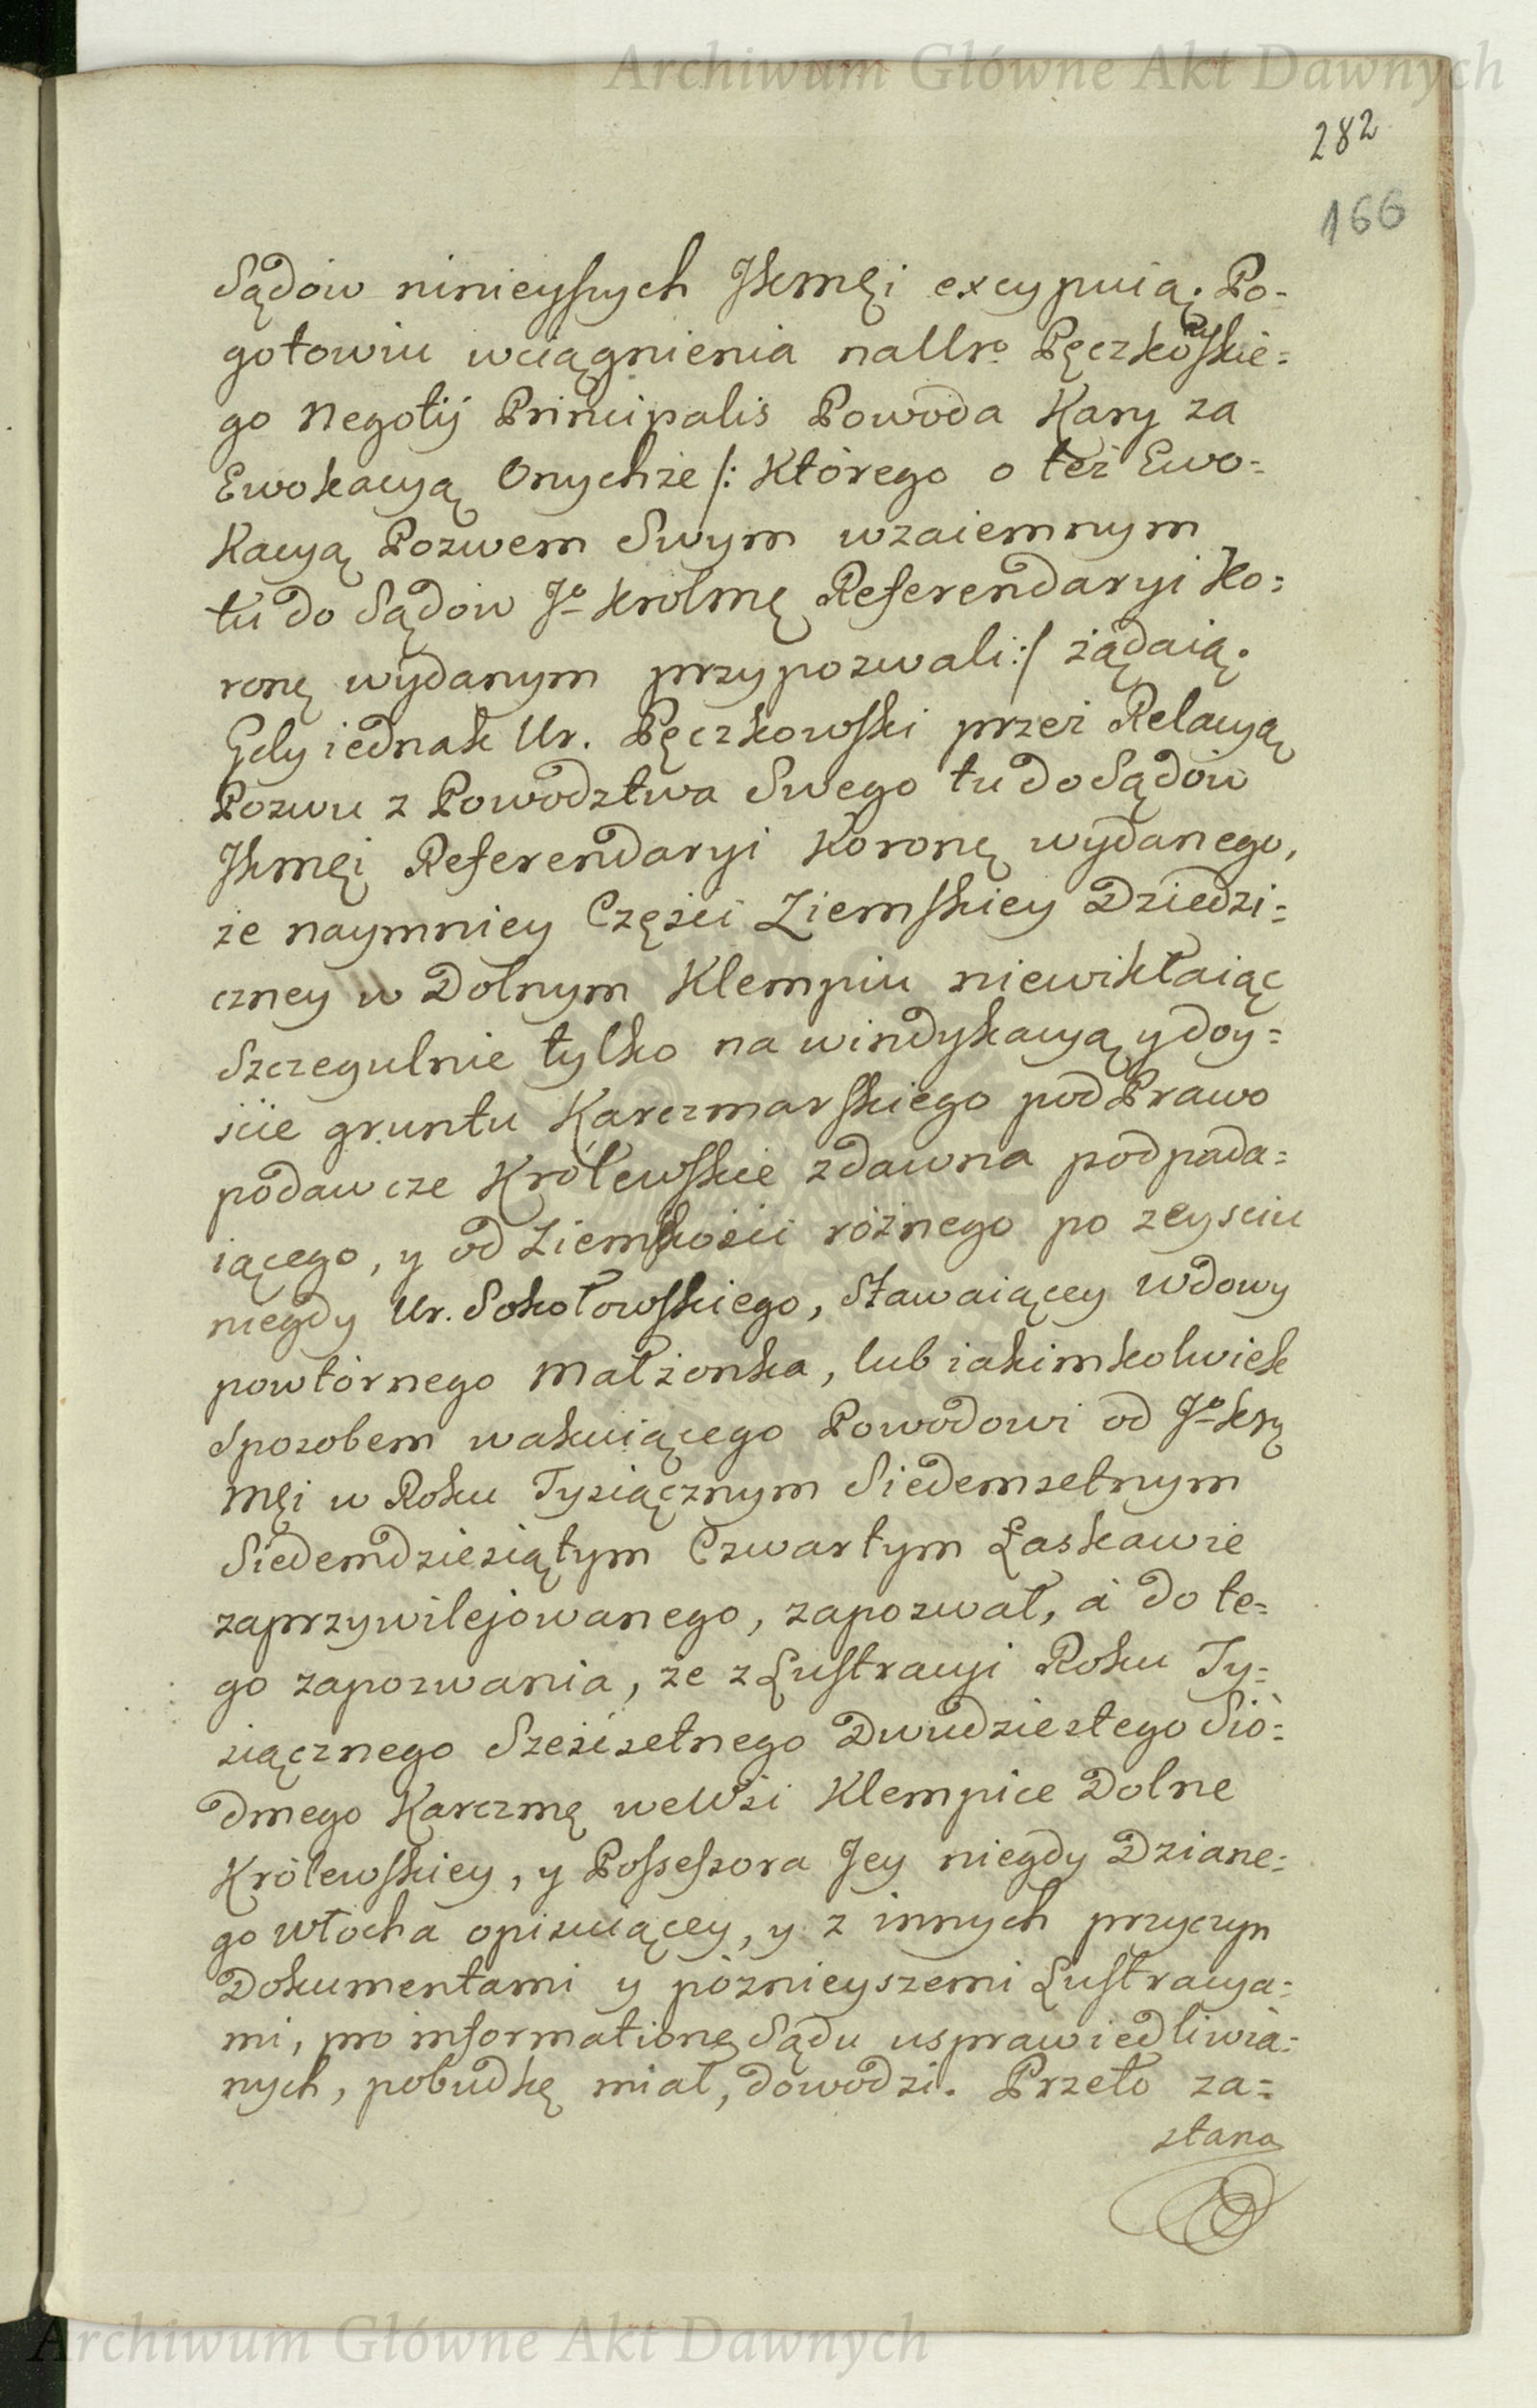 Archiwum Główne Akt Dawnych
282
166
Sądow ninieyszych JKmęi excypuią. Po-
gotowiu wciągnienia na Ur⁰ Pęczkowskie=
go Negotij Principalis Powoda Kary za
Ewokacyą Onychże /: Którego o też Ewo=
kacyą Pozwem Swym wzaiemnym
tu do Sądow J⁰ Krolmę Referendaryi Ko=
ronę wydanym przypozwali :/ żądaią.
Gdy iednak Ur. Pęczkowski przez Relacyą
Pozwu z Powodztwa Swego tu do Sądow
JKmęi Referendaryi Koronę wydanego,
że naymniey Części Ziemskiey Dziedzi=
czney w Dolnym Klempiu niewikłaiąc
Szczegulnie tylko na windykacyą y doy=
ście gruntu Karczmarskiego pod Prawo
podawcze Królewskie zdawna podpada=
iącego, y od Ziemskości różnego po zeysciu
niegdy Ur. Sokołowskiego, Stawaiącey Wdowy
powtórnego Małżonka, lub iakimkolwiek
Sposobem wakuiącego Powodowi od J⁰ Krę
Męi w Roku Tysiącznym Siedemsetnym
Siedemdziesiątym Czwartym Łaskawie
zaprzywilejowanego, zapozwał, á do te=
go zapozwania, że z Lustracyi Roku Ty=
siącznego Sześćsetnego Dwudziestego Sió=
dmego Karczmę we Wsi Klempice Dolne
Królewskiey, y Possessora Jey niegdy Dziane=
go Włocha opisuiącey, y z innych przyczyn
Dokumentami y póznieyszemi Lustracya=
mi, pro informatione Sądu usprawiedliwia=
nych, pobudkę miał, dowodzi. Przeto za=
stana
Archiwum Główne Akt Dawnych